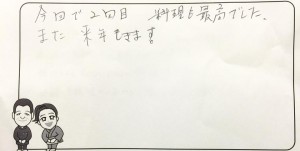 今回で2回目 料理も最高でした。
また 来年もきます